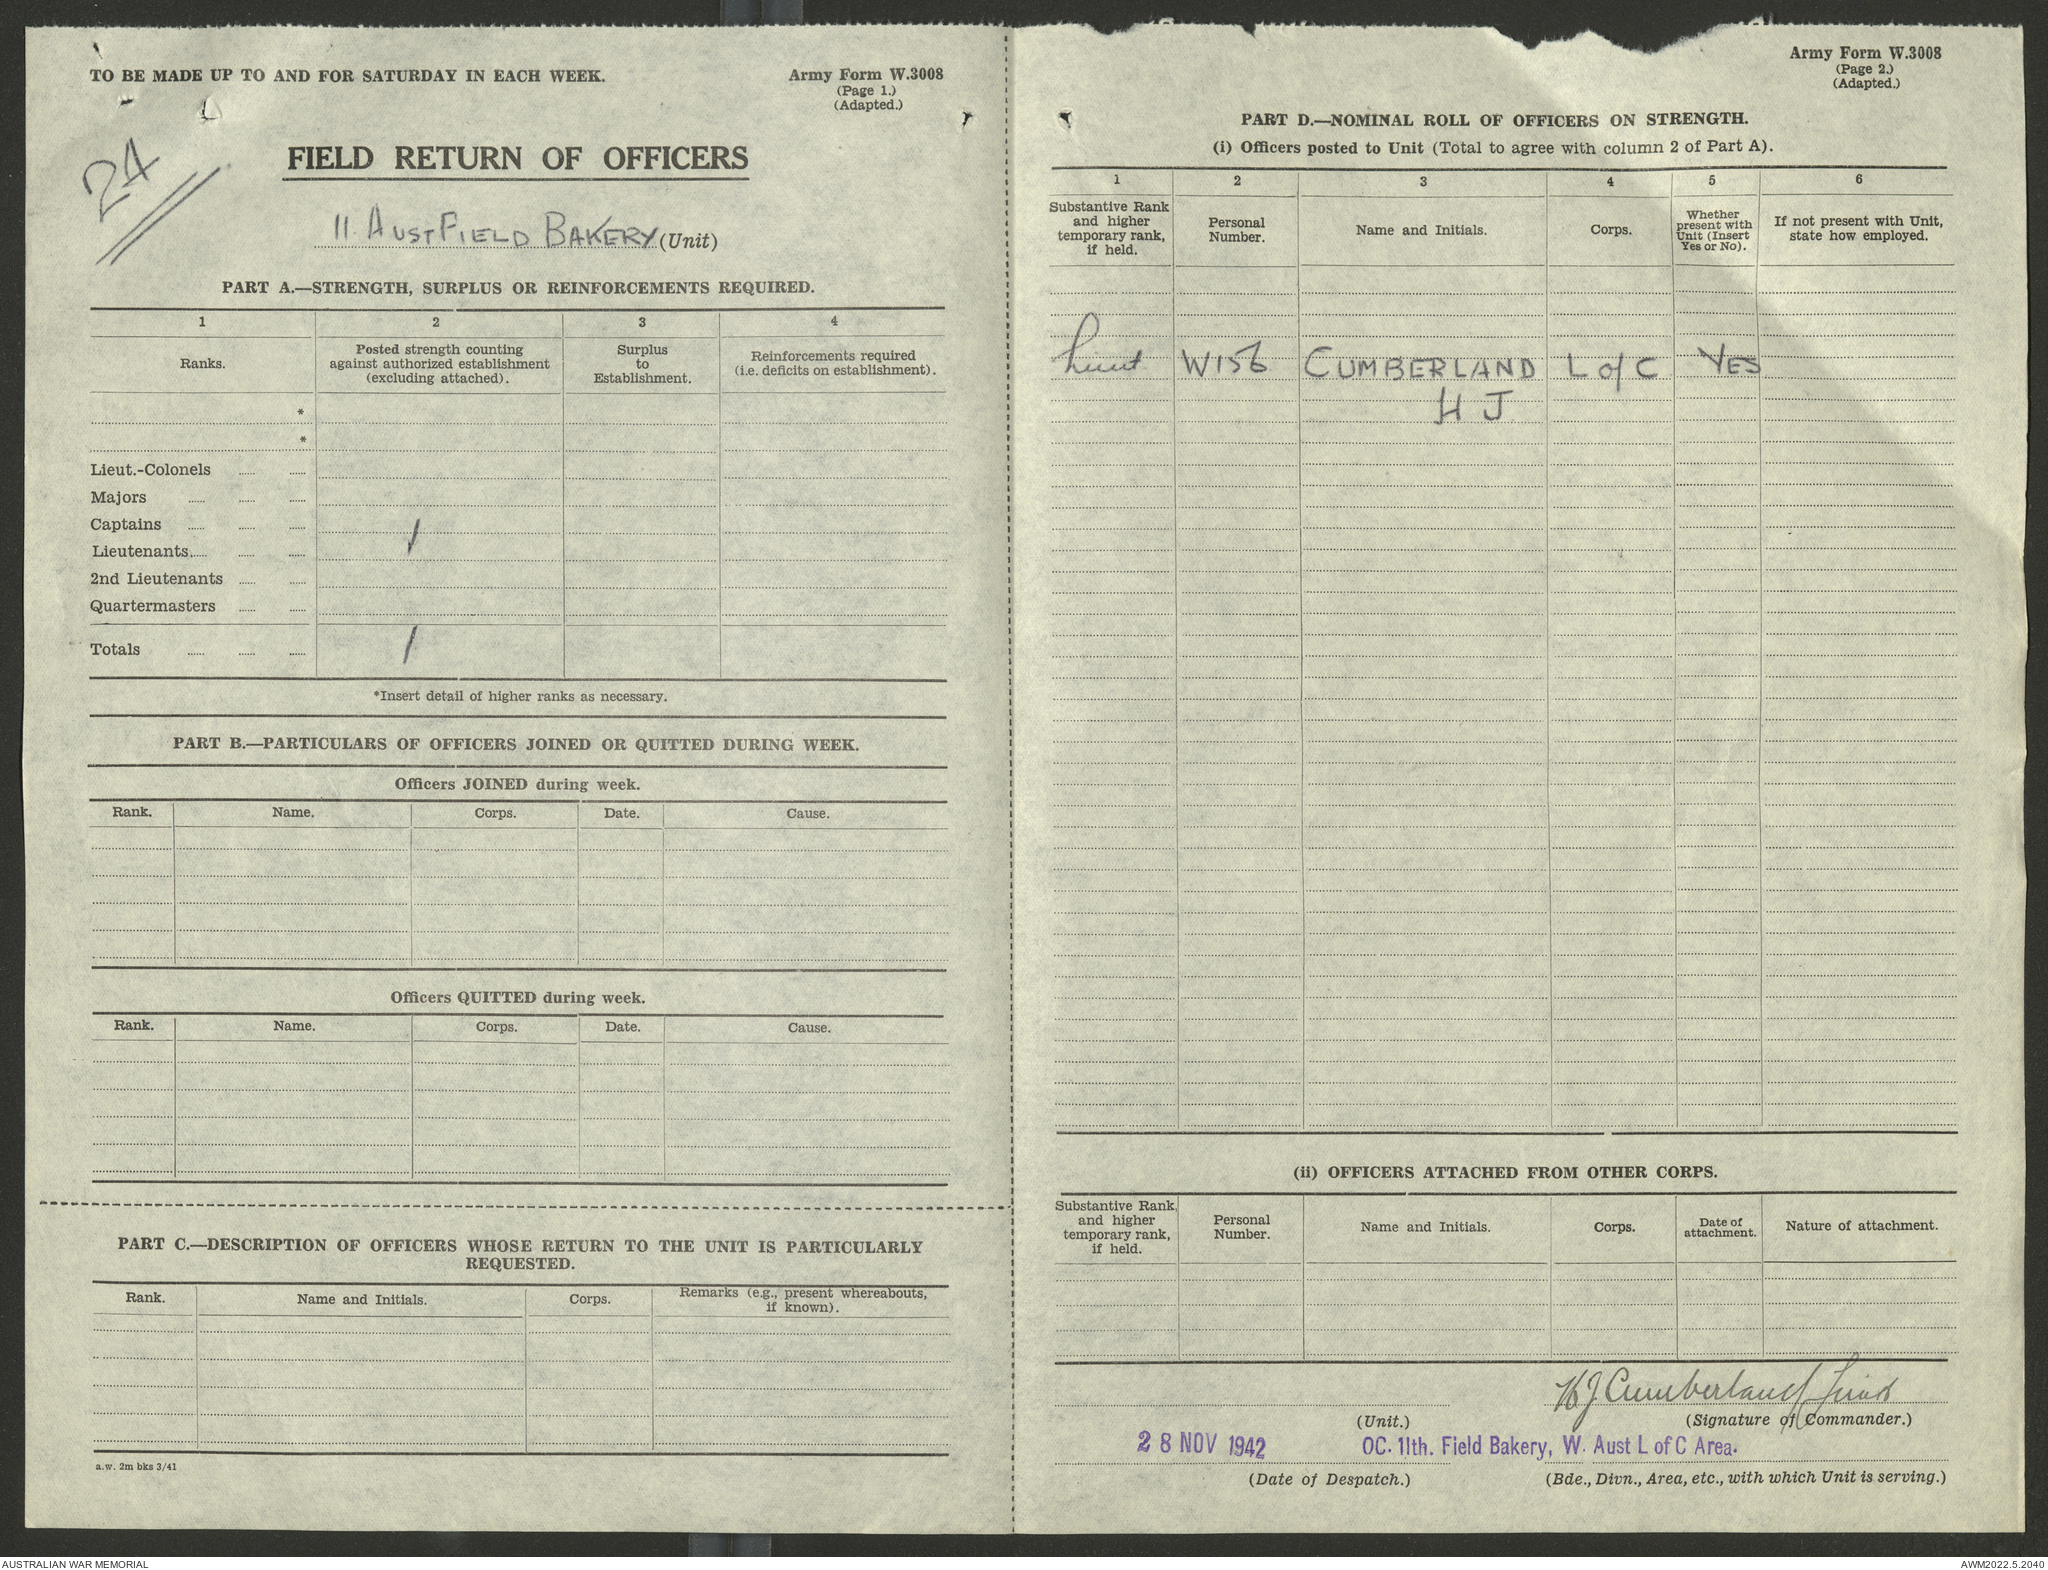 TO BE MADE UP TO AND FOR SATURDAY IN EACH WEEK.
Army Form W.3008
(Page 1.)
(Adapted.)
2A
FIELD RETURN OF OFFICERS
11 AUST FIELD BAKERY (Unit)
PART A.—STRENGTH, SURPLUS OR REINFORCEMENTS REQUIRED.
1 2 3 4
Ranks.
Posted strength counting
against authorized establishment
(excluding attached).
Surplus
to
Establishment.
Reinforcements required
(i.e. deficits on establishment).
*
*
Lieut.-Colonels
Majors
Captains
Lieutenants 1
2nd Lieutenants
Quartermasters
Totals 1
*Insert detail of higher ranks as necessary.
PART B.—PARTICULARS OF OFFICERS JOINED OR QUITTED DURING WEEK.
Officers JOINED during week.
Rank. Name. Corps. Date. Cause.
Officers QUITTED during week.
Rank. Name. Corps. Date. Cause.
PART C.—DESCRIPTION OF OFFICERS WHOSE RETURN TO THE UNIT IS PARTICULARLY
REQUESTED.
Rank. Name and Initials. Corps.
Remarks (e.g., present whereabouts,
if known).
a.w. 2m bks 3/41
Army Form W.3008
(Page 2.)
(Adapted.)
PART D.—NOMINAL ROLL OF OFFICERS ON STRENGTH.
(i) Officers posted to Unit (Total to agree with column 2 of Part A).
1 2 3 4 5 6
Substantive Rank
and higher
temporary rank,
if held.
Personal
Number.
Name and Initials.
Corps.
Whether
present with
Unit (Insert
Yes or No).
If not present with Unit,
state how employed.
Lieut W156 CUMBERLAND L of C YES
H J
(ii) OFFICERS ATTACHED FROM OTHER CORPS.
Substantive Rank
and higher
temporary rank,
if held.
Personal
Number.
Name and Initials.
Corps.
Date of
attachment.
Nature of attachment.
HJ Cumberland Lieut
(Unit.) (Signature of Commander.)
28 NOV 1942 OC. 11th. Field Bakery, W. Aust L of C Area.
(Date of Despatch.) (Bde., Divn., Area, etc., with which Unit is serving.)
AUSTRALIAN WAR MEMORIAL AWM2022.5.2040